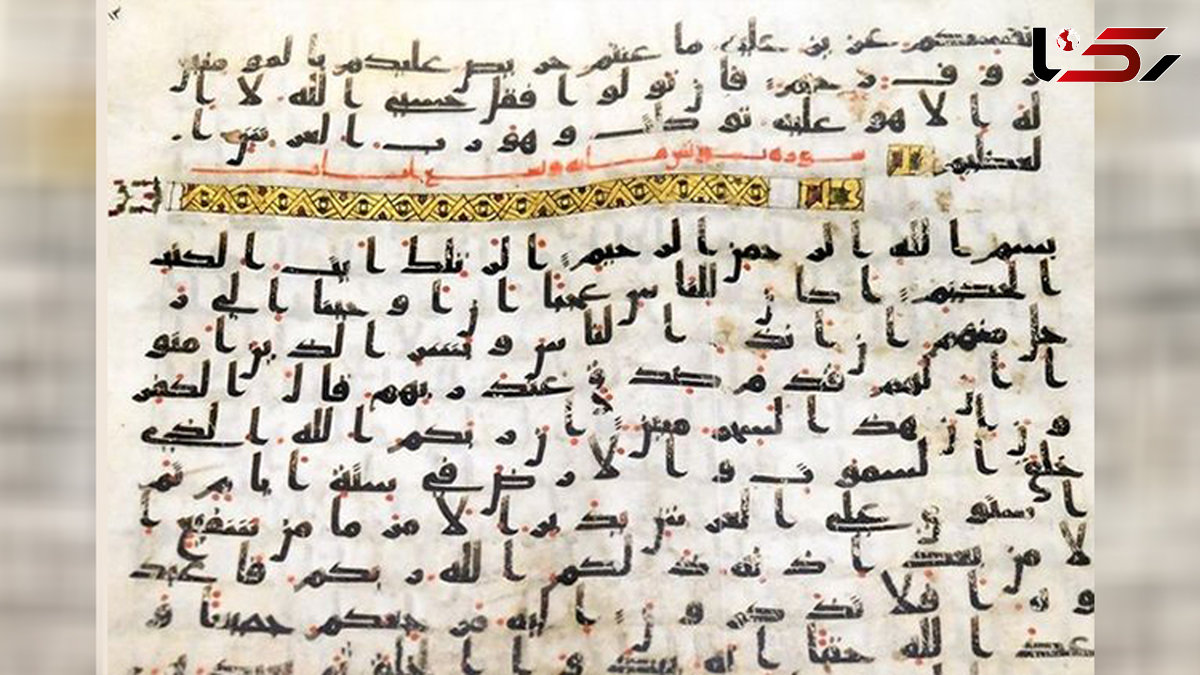 ١٢
رکنا
نفسكم عزيز عليه ما عنتم حريص عليكم بالمومنين
روف رحيم فان تولوا فقل حسبي الله لا ا
له الا هو عليه توكلت وهو رب العرش ا
لعظيم
سورة يونس مائة وتسع ايات
بسم الله الرحمن الرحيم الر تلك ايت الكتب
الحكيم اكان للناس عجبا ان اوحينا الى ر
جل منهم ان انذر الناس وبشر الذين امنو
ا ان لهم قدم صدق عند ربهم قال الكفر
ون ان هذا لسحر مبين ان ربكم الله الذي
خلق السموت والارض في ستة ايام ثم
استوى على العرش يدبر الامر ما من شفيع ا
لا من بعد اذنه ذلكم الله ربكم فاعبد
وه افلا تذكرون اليه مرجعكم جميعا و
عد الله حقا انه